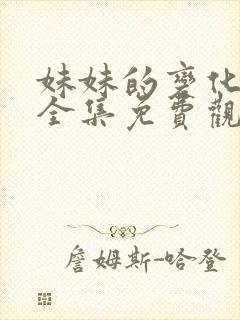 妹妹的變化
全集免費觀
詹姆斯-哈登